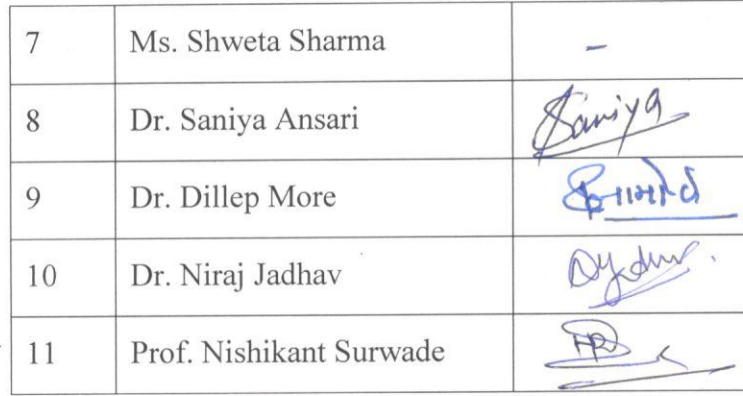 7 Ms. Shweta Sharma -
8 Dr. Saniya Ansari Saniya
9 Dr. Dillep More
10 Dr. Niraj Jadhav
11 Prof. Nishikant Surwade